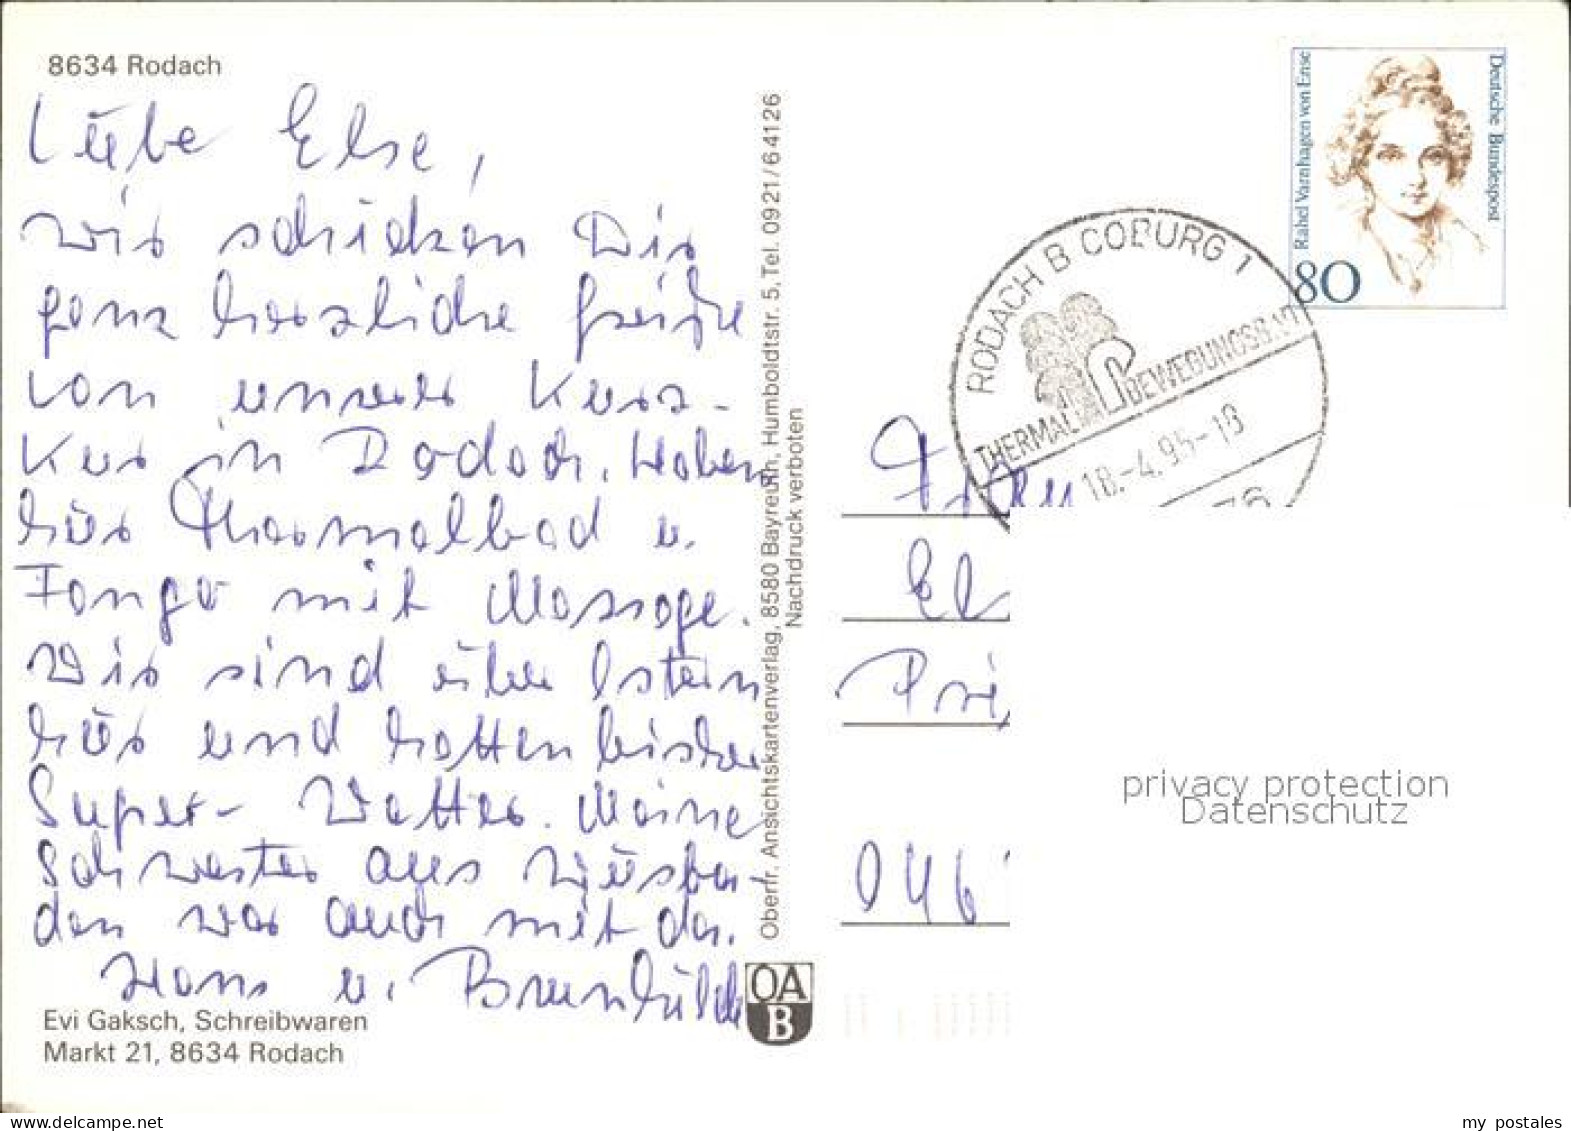 8634 Rodach
Liebe Else,
wir schicken Dir
ganz herzliche Grüße
von unserer Kurz-
Kur in Rodach. Haben
hier Thermalbad u.
Fango mit Massage.
Wir sind über Ostern
hier und hatten bisher
Super-Wetter. Meine
Schwester aus Wiesba-
den war auch mit da.
Hans u. Brunhilde
Evi Gaksch, Schreibwaren
Markt 21, 8634 Rodach
Oberfr. Ansichtskartenverlag, 8580 Bayreuth, Humboldtstr. 5, Tel. 0921/64126
Nachdruck verboten
OA
B
Rahel Varnhagen von Ense
Deutsche Bundespost
80
RODACH B COBURG 1
THERMAL BEWEGUNGSBAD
18.-4.95-18
Frau
El
Pri
046
privacy protection
Datenschutz
my postales